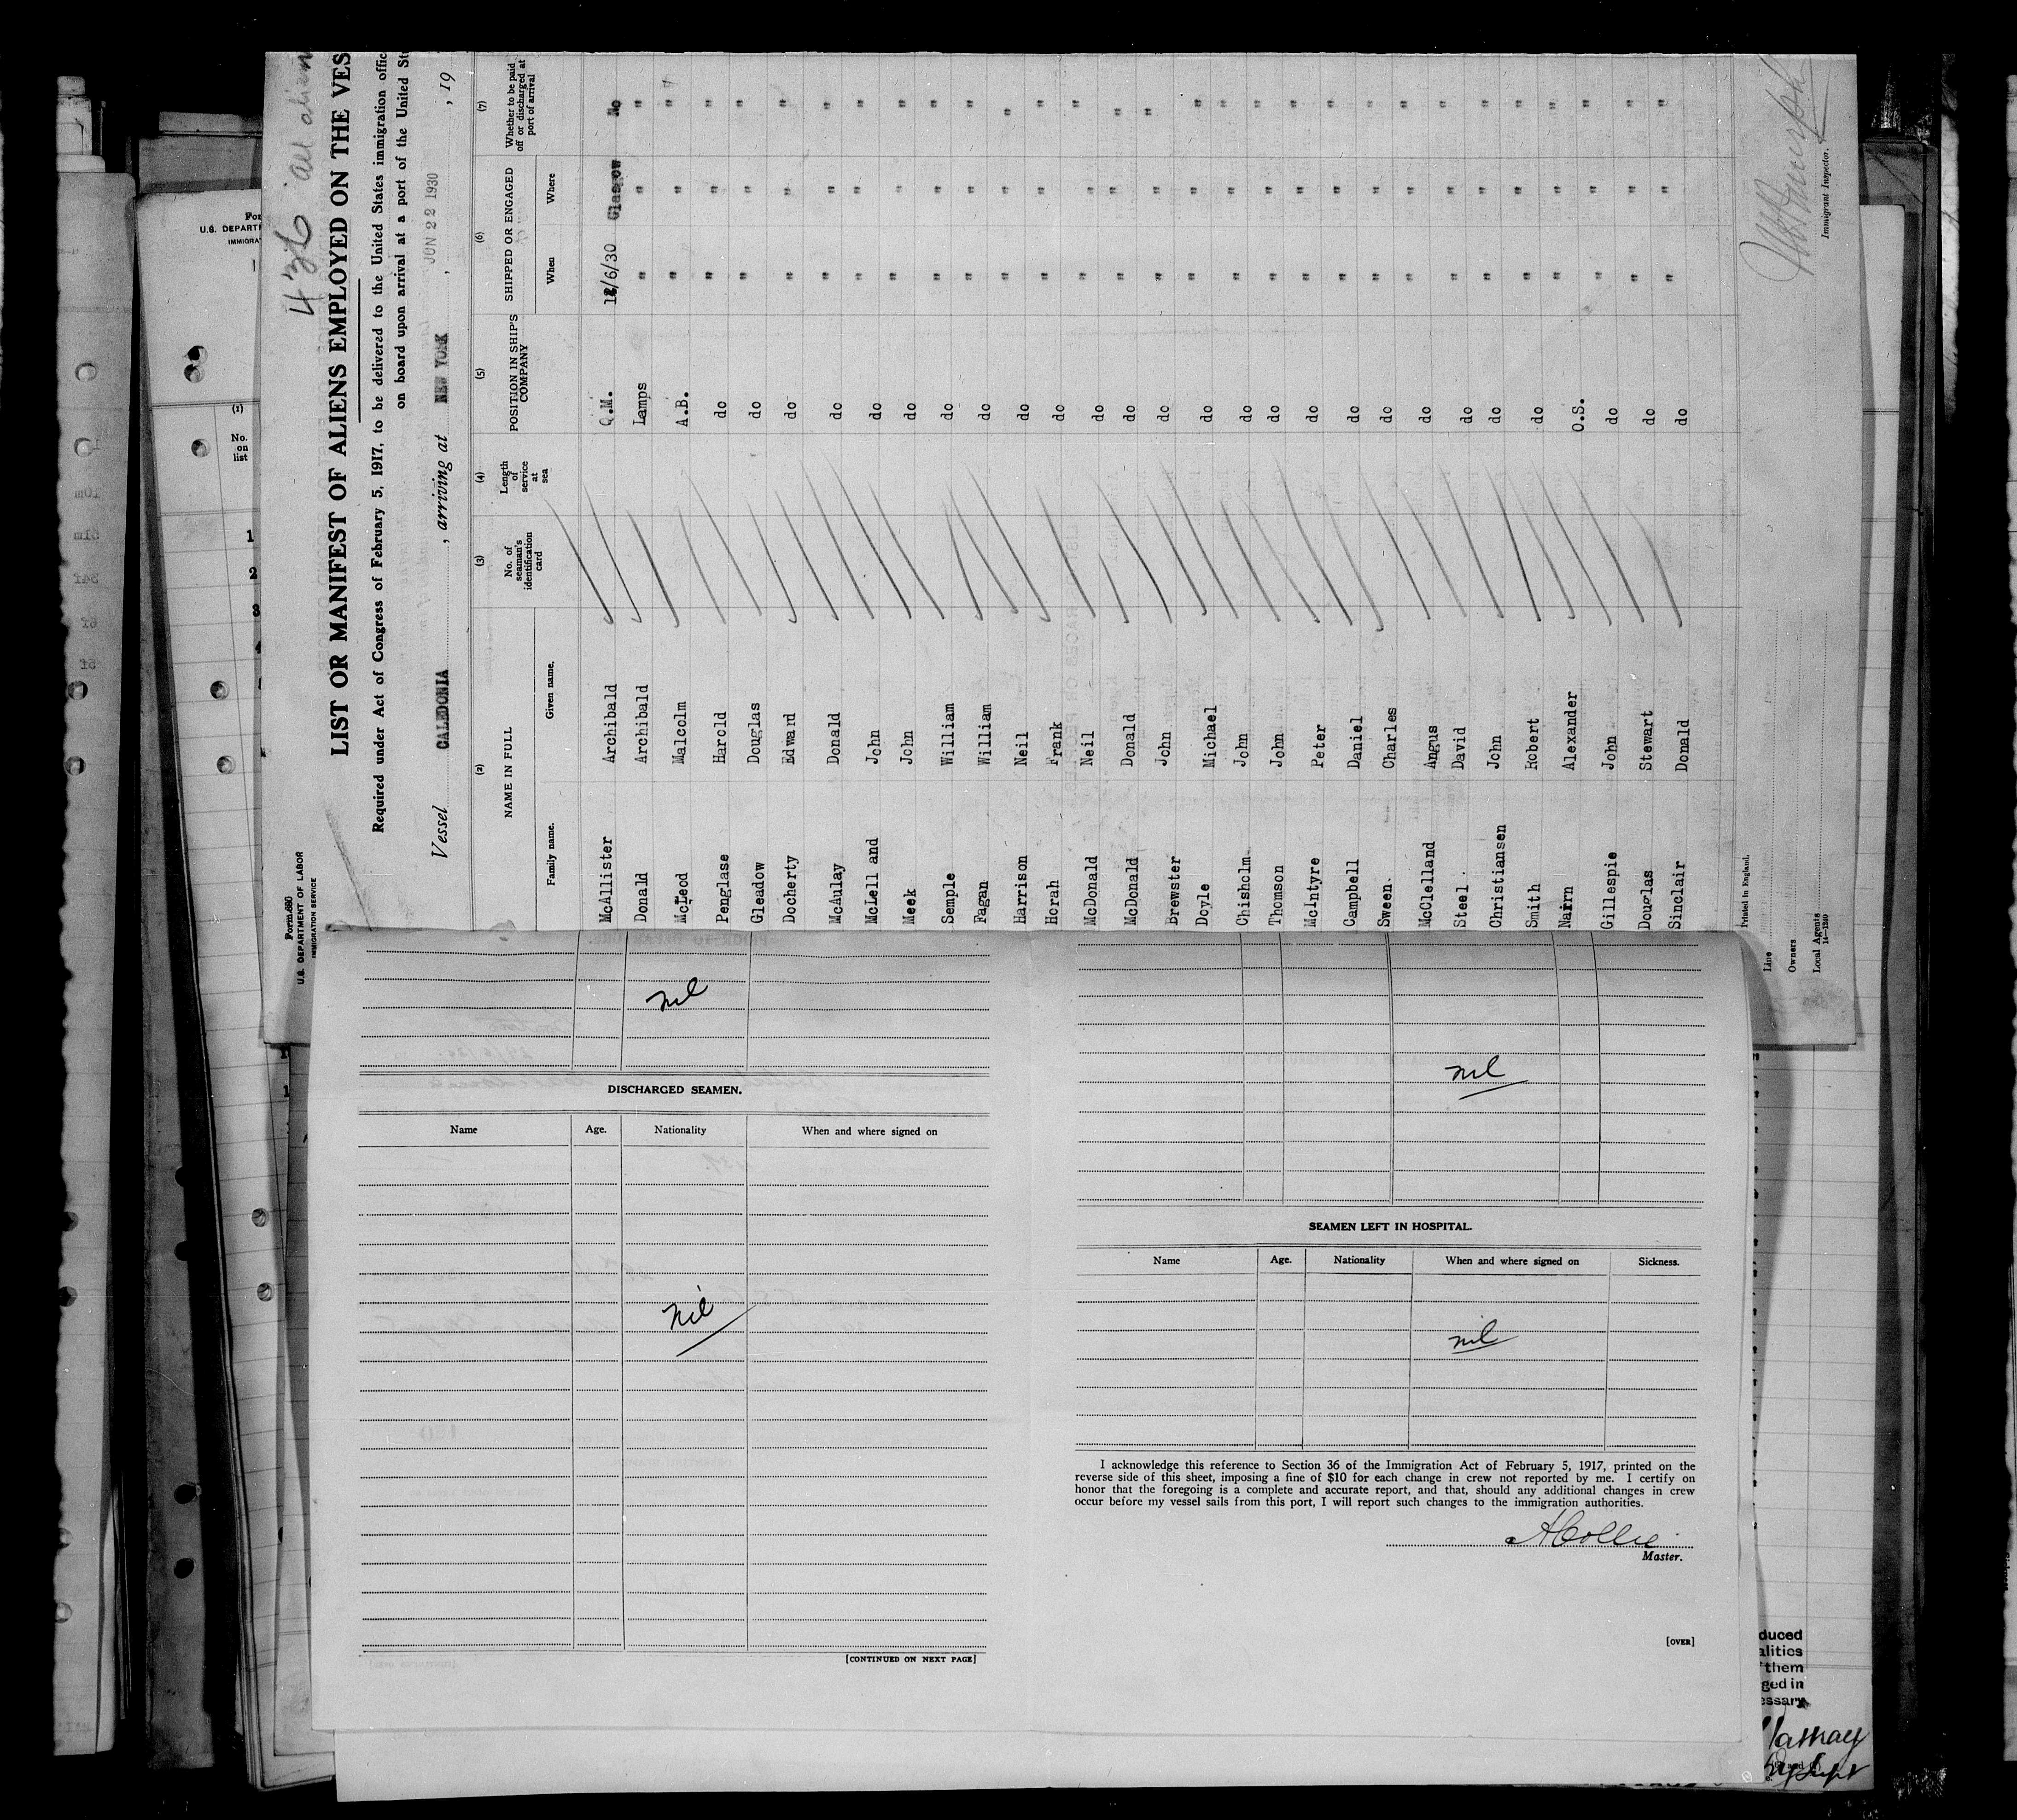 436 all alien
Form 680
U.S. DEPARTMENT OF LABOR
IMMIGRATION SERVICE
LIST OR MANIFEST OF ALIENS EMPLOYED ON THE VES
Required under Act of Congress of February 5, 1917, to be delivered to the United States immigration offic
on board upon arrival at a port of the United St
Vessel CALEDONIA, arriving at NEW YORK, JUN 22 1930, 19
(2) (3) (4) (5) (6) (7)
NAME IN FULL
Family name. Given name.
No. of seaman's identification card
Length of service at sea
POSITION IN SHIP'S COMPANY
SHIPPED OR ENGAGED
When Where
Whether to be paid off or discharged at port of arrival
McAllister Archibald Q.M. /6/30 Glasgow No
Donald Archibald Lamps " " "
McLeod Malcolm A.B. " " "
Penglase Harold do " " "
Gleadow Douglas do " " "
Docherty Edward do " " "
McAulay Donald do " " "
McLell and John do " " "
Meek John do " " "
Semple William do " " "
Fagan William do " " "
Harrison Neil do " " "
Horah Frank do " " "
McDonald Neil do " " "
McDonald Donald do " " "
Brewster John do " " "
Doyle Michael do " " "
Chisholm John do " " "
Thomson John do " " "
McIntyre Peter do " " "
Campbell Daniel do " " "
Sween Charles do " " "
McClelland Angus do " " "
Steel David do " " "
Christiansen John do " " "
Smith Robert do " " "
Nairn Alexander O.S. " " "
Gillespie John do " " "
Douglas Stewart do " " "
Sinclair Donald do " " "
Printed in England.
Line
Owners
Local Agents
14—1240
Immigrant Inspector.
For
U.S. DEPART
IMMIGRA
(1)
No. on list
1
2
3
4
nil
DISCHARGED SEAMEN.
Name Age. Nationality When and where signed on
nil
[CONTINUED ON NEXT PAGE]
nil
SEAMEN LEFT IN HOSPITAL.
Name Age. Nationality When and where signed on Sickness.
nil
I acknowledge this reference to Section 36 of the Immigration Act of February 5, 1917, printed on the
reverse side of this sheet, imposing a fine of $10 for each change in crew not reported by me. I certify on
honor that the foregoing is a complete and accurate report, and that, should any additional changes in crew
occur before my vessel sails from this port, I will report such changes to the immigration authorities.
A Collie
Master.
[OVER]
duced
alities
them
ged in
essary